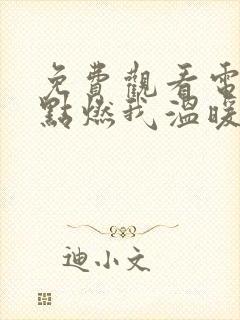 免費觀看電
點燃我溫暖
迪小文